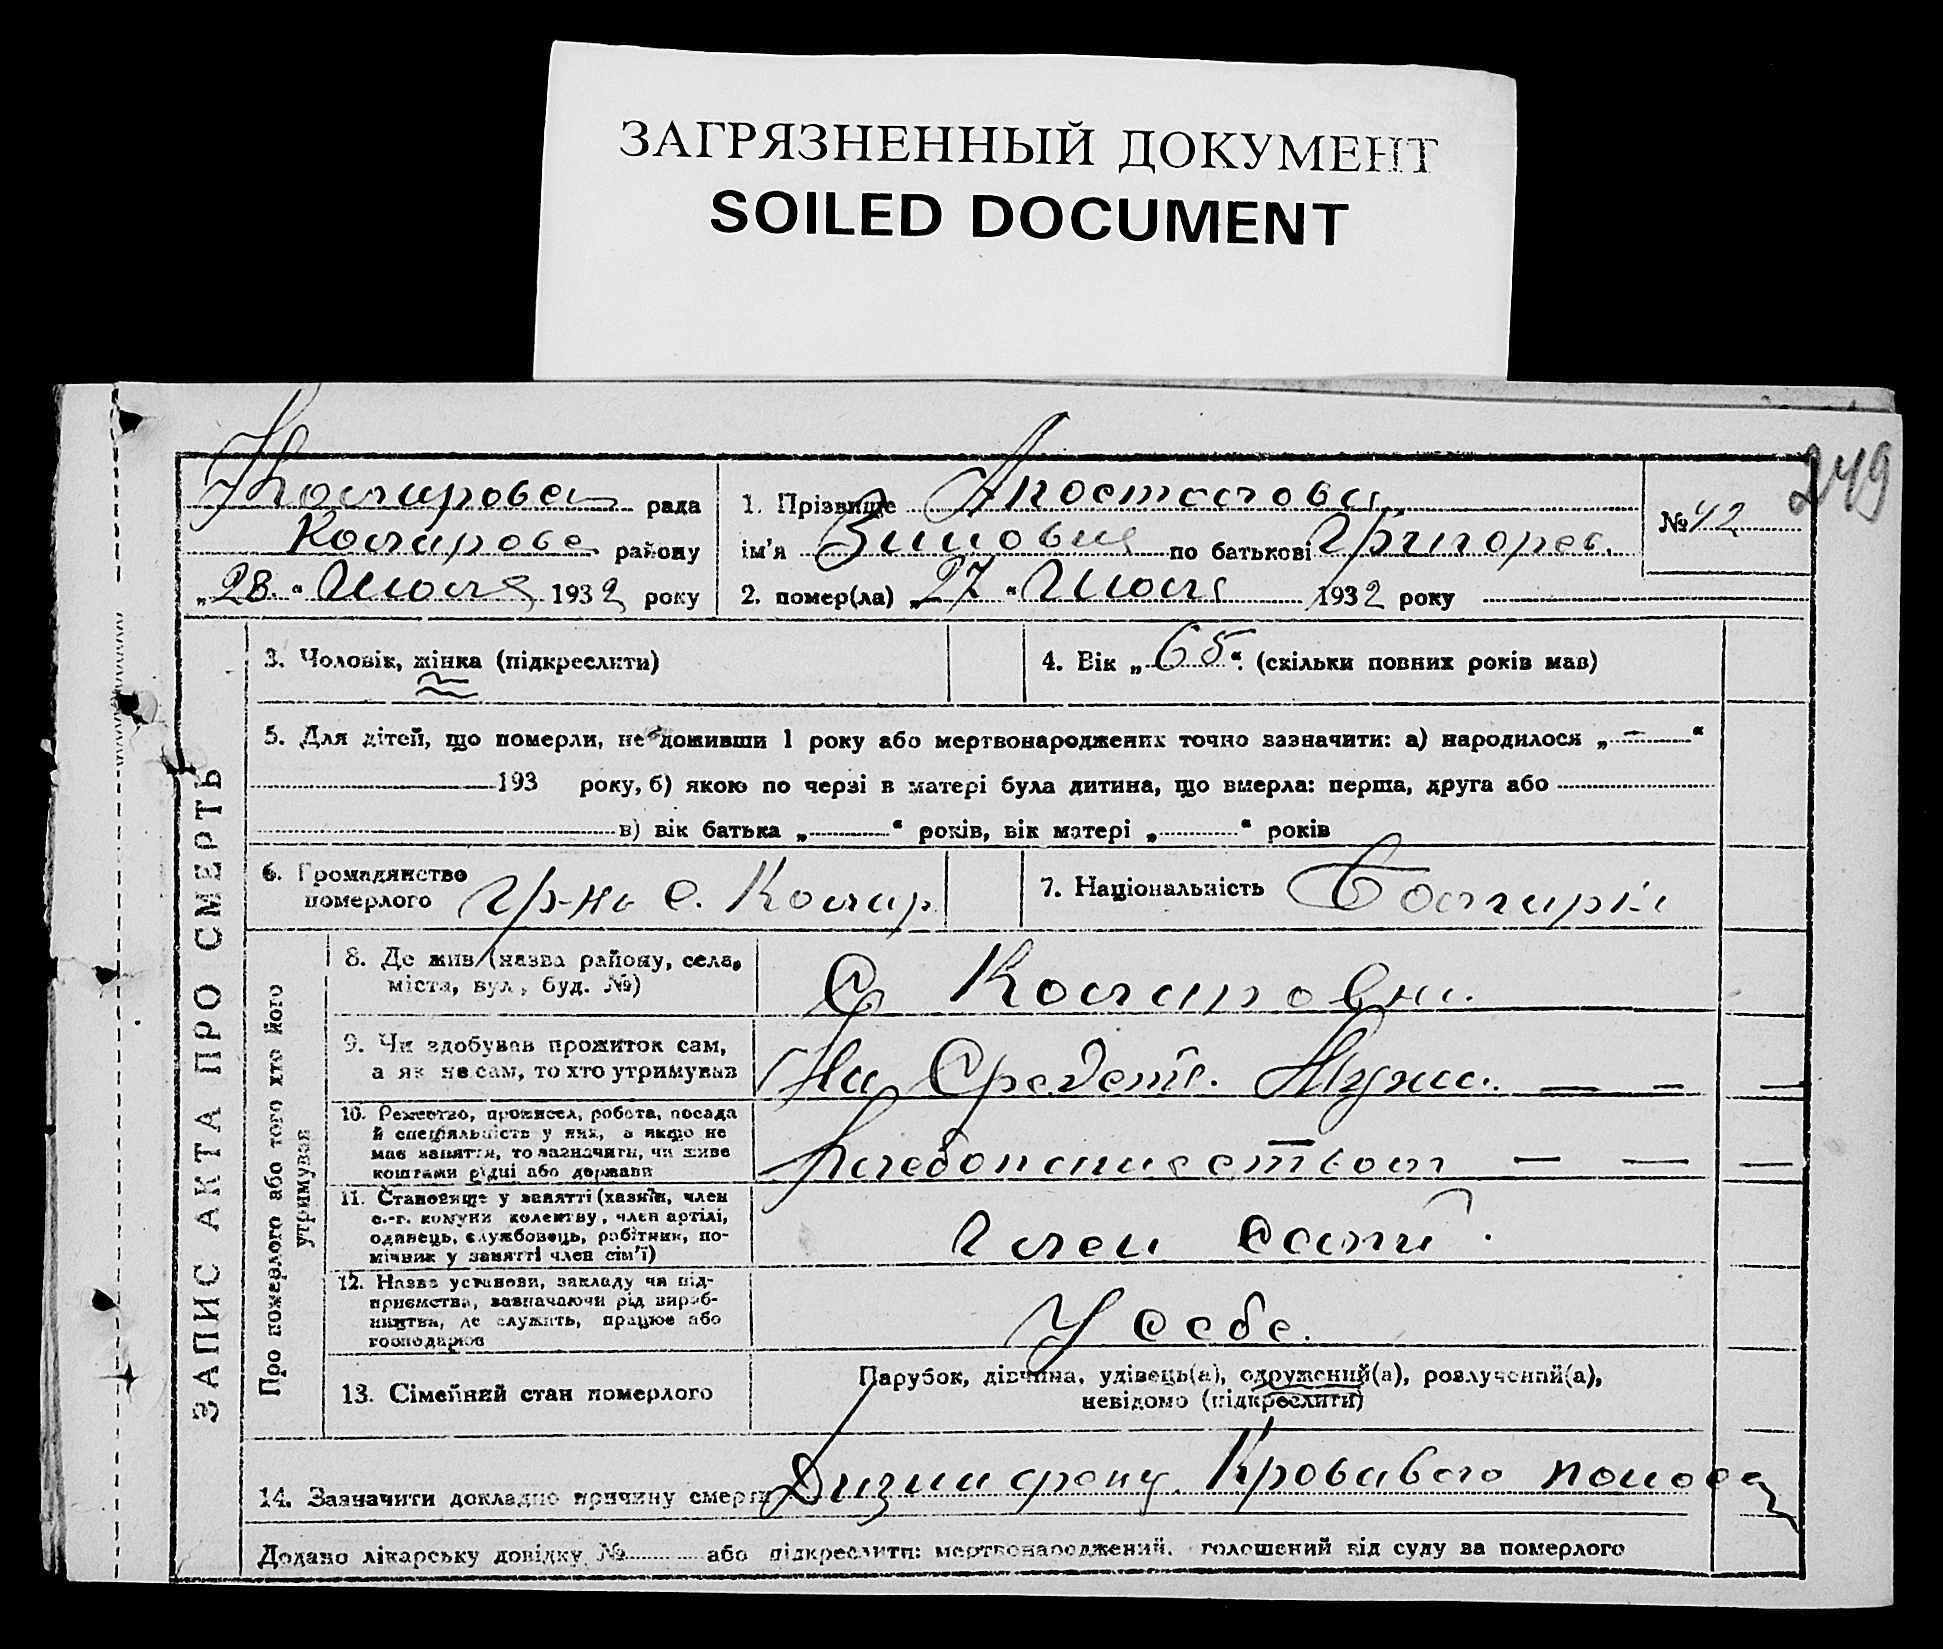 ЗАГРЯЗНЕННЫЙ ДОКУМЕНТ
SOILED DOCUMENT
249
рада
району
„28“ Июля 1932 року
1. Прізвище Апостолова
ім'я Зиновия по батькові Григорев.
2. помер(ла) „27“ Июля 1932 року
№ 42
ЗАПИС АКТА ПРО СМЕРТЬ
3. Чоловік, жінка (підкреслити)
4. Вік „65“ (скільки повних років мав)
5. Для дітей, що померли, не доживши 1 року або мертвонароджених точно зазначити: а) народилося „—“
193 року, б) якою по черзі в матері була дитина, що вмерла: перша, друга або
в) вік батька „ “ років, вік матері „ “ років
6. Громадянство
померлого гр-нь с. Коляр.
7. Національність Болгарка
Про померлого або того хто його
утримував
8. Де жив (назва району, села,
міста, вул., буд. №)
С
9. Чи здобував прожиток сам,
а як не сам, то хто утримував
На Средств. Мужа. — — —
10. Ремество, промисел, робота, посада
й спеціяльність у них, а якщо не
має заняття, то зазначити, чи живе
коштами рідні або держави
Хлебопашеством — — —
11. Становище у занятті (хазяїн, член
с.-г. комуни колективу, член артілі,
одинець, службовець, робітник, по-
мічник у занятті член сім'ї)
Член
12. Назва установи, закладу чи під-
приємства, зазначаючи рід вироб-
ництва, де служить, працює або
господарює
У себе.
13. Сімейний стан померлого
Парубок, дівчина, удівець(а), одружений(а), розлучений(а),
невідомо (підкреслити)
14. Зазначити докладно причину смерти Кровавого поноса
Додано лікарську довідку № або підкреслити: мертвонароджений, оголошений від суду за померлого